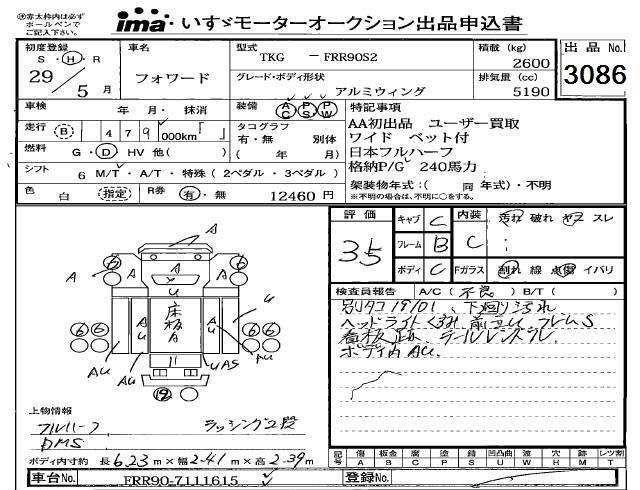 ㊟赤太枠内は必ず
ボールペンで
ご記入下さい。
ima いすゞモーターオークション出品申込書
初度登録
S・H・R
29年5月
車名
フォワード
型式
TKG － FRR90S2
グレード・ボディ形状
アルミウィング
積載 (kg)
2600
排気量 (cc)
5190
出品No.
3086
車検 年 月・抹消
走行 (B) 4 7 9 000km「 」
燃料 G・D・HV 他( )
シフト 6 M/T・A/T・特殊(2ペダル・3ペダル)
色 白 指定
R券 有・無 12460円
装備 AC PS PW
タコグラフ
有・無 別体
( 年 月)
特記事項
AA初出品 ユーザー買取
ワイド ベット付
日本フルハーフ
格納P/G 240馬力
架装物年式:( 同 年式)・不明
※不明の場合は、不明に○をする。
評価
3.5
キャブ C
フレーム B
ボディ C
内装 C
Fガラス
汚れ 破れ ヤブ スレ
割れ 線 点傷 イバリ
検査員報告 A/C(不良) B/T( )
別タコ19/01、下廻りヨゴレ
ヘッドライトくもみ
ボディ内AU.
A
A
⑥ ⑥
A
U
床板
A
AU
AU
U
AU
AU
UAS
⑥⑥ ⑥⑥
⑫
上物情報
フルハーフ ラッシング2段
DMS
ボディ内寸約 長 6.23 m×幅 2.41 m×高 2.39 m
記号 傷 A 板金 B 腐 C 塗 P 錆 S 凹凸曲 U 波 W 穴 H 跡 M レツ割 T
車台No. FRR90-7111615
登録No.